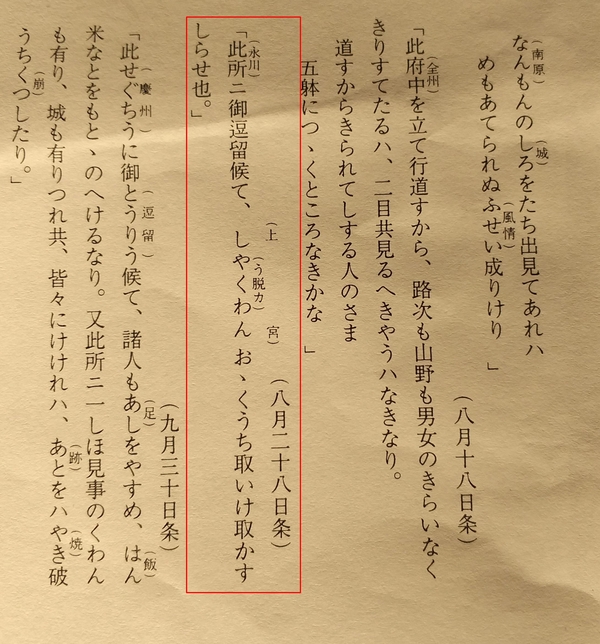 なんもん（南原）のしろ（城）をたち出見てあれハ
めもあてられぬふせい（風情）成りけり　」
（八月十八日条）
「此府中（全州）を立て行道すから、路次も山野も男女のきらいなく
きりすてたるハ、二目共見るへきやうハなきなり。
道すからきられてしする人のさま
五躰につゝくところなきかな　」
（八月二十八日条）
「此所（永川）ニ御逗留候て、しやくわん（上宮）（う脱カ）おゝくうち取いけ取かす
しらせ也。」
（九月三十日条）
「此せぐちう（慶州）に御とうりう（逗留）候て、諸人もあし（足）をやすめ、はん（飯）
米なとをもとゝのへけるなり。又此所ニ一しほ見事のくわん
も有り、城も有りつれ共、皆々にけけれハ、あと（跡）をハやき（焼）破
うちくつし（崩）たり。」